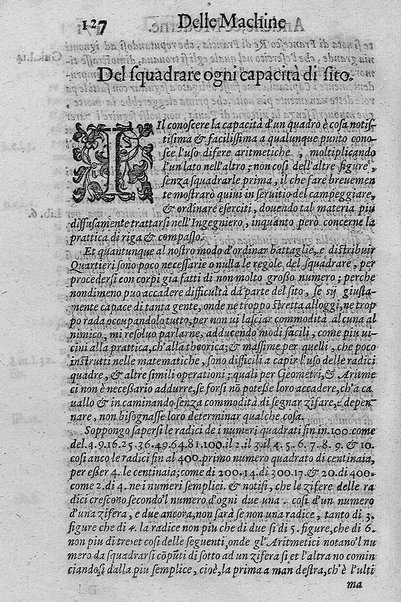 127 Delle Machine
Del squadrare ogni capacità di sito.
IIl conoscere la capacità d'un quadro è cosa notis
sima & facilissima a qualunque punto cono
sce l'uso difere aritmetiche , moltiplicando
l'un lato nell'altro; non così dell'altre figure,
senza squadrarle prima, il che fare breuemen
te mostrarò quiui in seruitio del campeggiare,
& ordinare eserciti, douendo tal materia più
diffusamente trattarsi nell'Ingegniero, inquanto però concerne la
prattica di riga & compasso.
Et quantunque al nostro modo d'ordinar battaglie, e distribuir
Quartieri sono poco necessarie o nulla le regole del squadrare, per
procedersi con corpi gia fatti di non molto grosso numero; perche
nondimeno può accadere difficultà da parte del sito, se sij giusta-
mente capace di tanta gente, onde ne troppo stretta alloggi, ne trop
po rada occupando lo tutto, per non vi lasciar commodità alcuna al
nimico, mi resoluo parlarne, adducendo modi facili, come più ui-
cini alla prattica, ch'alla theorica; & massime per quelli, che poco
instrutti nelle matematiche, sono difficili a capir l'uso delle radici
quadre, & altre simili operationi; quali per Geometri, & Aritme
ci non è necessario addurre, se forsi nō potese loro accadere, ch'a ca
uallo & in caminando senza commodità di segnar zifare, e depen-
nare, non bisognasse loro determinar qualche cosa.
Soppongo sapersi le radici de i numeri quadrati fin in.100. come
del.4.9.16.25.36.49.64.81.100.il.2.il 3.al 4. 5. 6. 7. 8. 9. & 10.
così anco le radici fin al 400. primo numero quadrato di centinaia,
per esser 4. le centinaia; come di 200. 14. di 300. 17. & 20. di 400.
come 2. di 4. ne i numeri semplici. & notisi, che le zifere delle ra
dici crescono secondo'l numero d'ogni due una. così d'un numero
d'una zifera, e due ancora, non sarà se non una radice, tanto di 3.
figure che di 4. la radice non piu che di due si di 5. figure, che di 6.
non piu di tre et così delle seguenti, onde gl' Aritmetici notano'l nu
mero da squadrarsi cōpūti di sotto ad un zifera si et l'altra no comin
ciandosi dalla piu semplice, cioè, la prima a man destra, ch'è l'ulti
ma